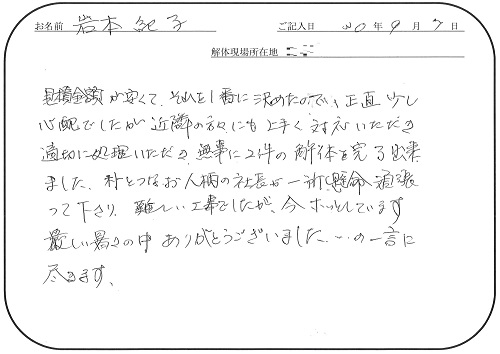 お名前 岩本 紀子 ご記入日 30 年 9 月 7 日
解体現場所在地
見積金額が安くて、それを1番に決めたので、正直少し
心配でしたが近隣の方々にも上手く対応いただき
適切に処理いただき、無事に2件の解体を完了出来
ました。朴とつなお人柄の社長が一所懸命頑張
って下さり、難しい工事でしたが、今ホッとしています
厳しい暑さの中ありがとうございました…の一言に
尽きます、